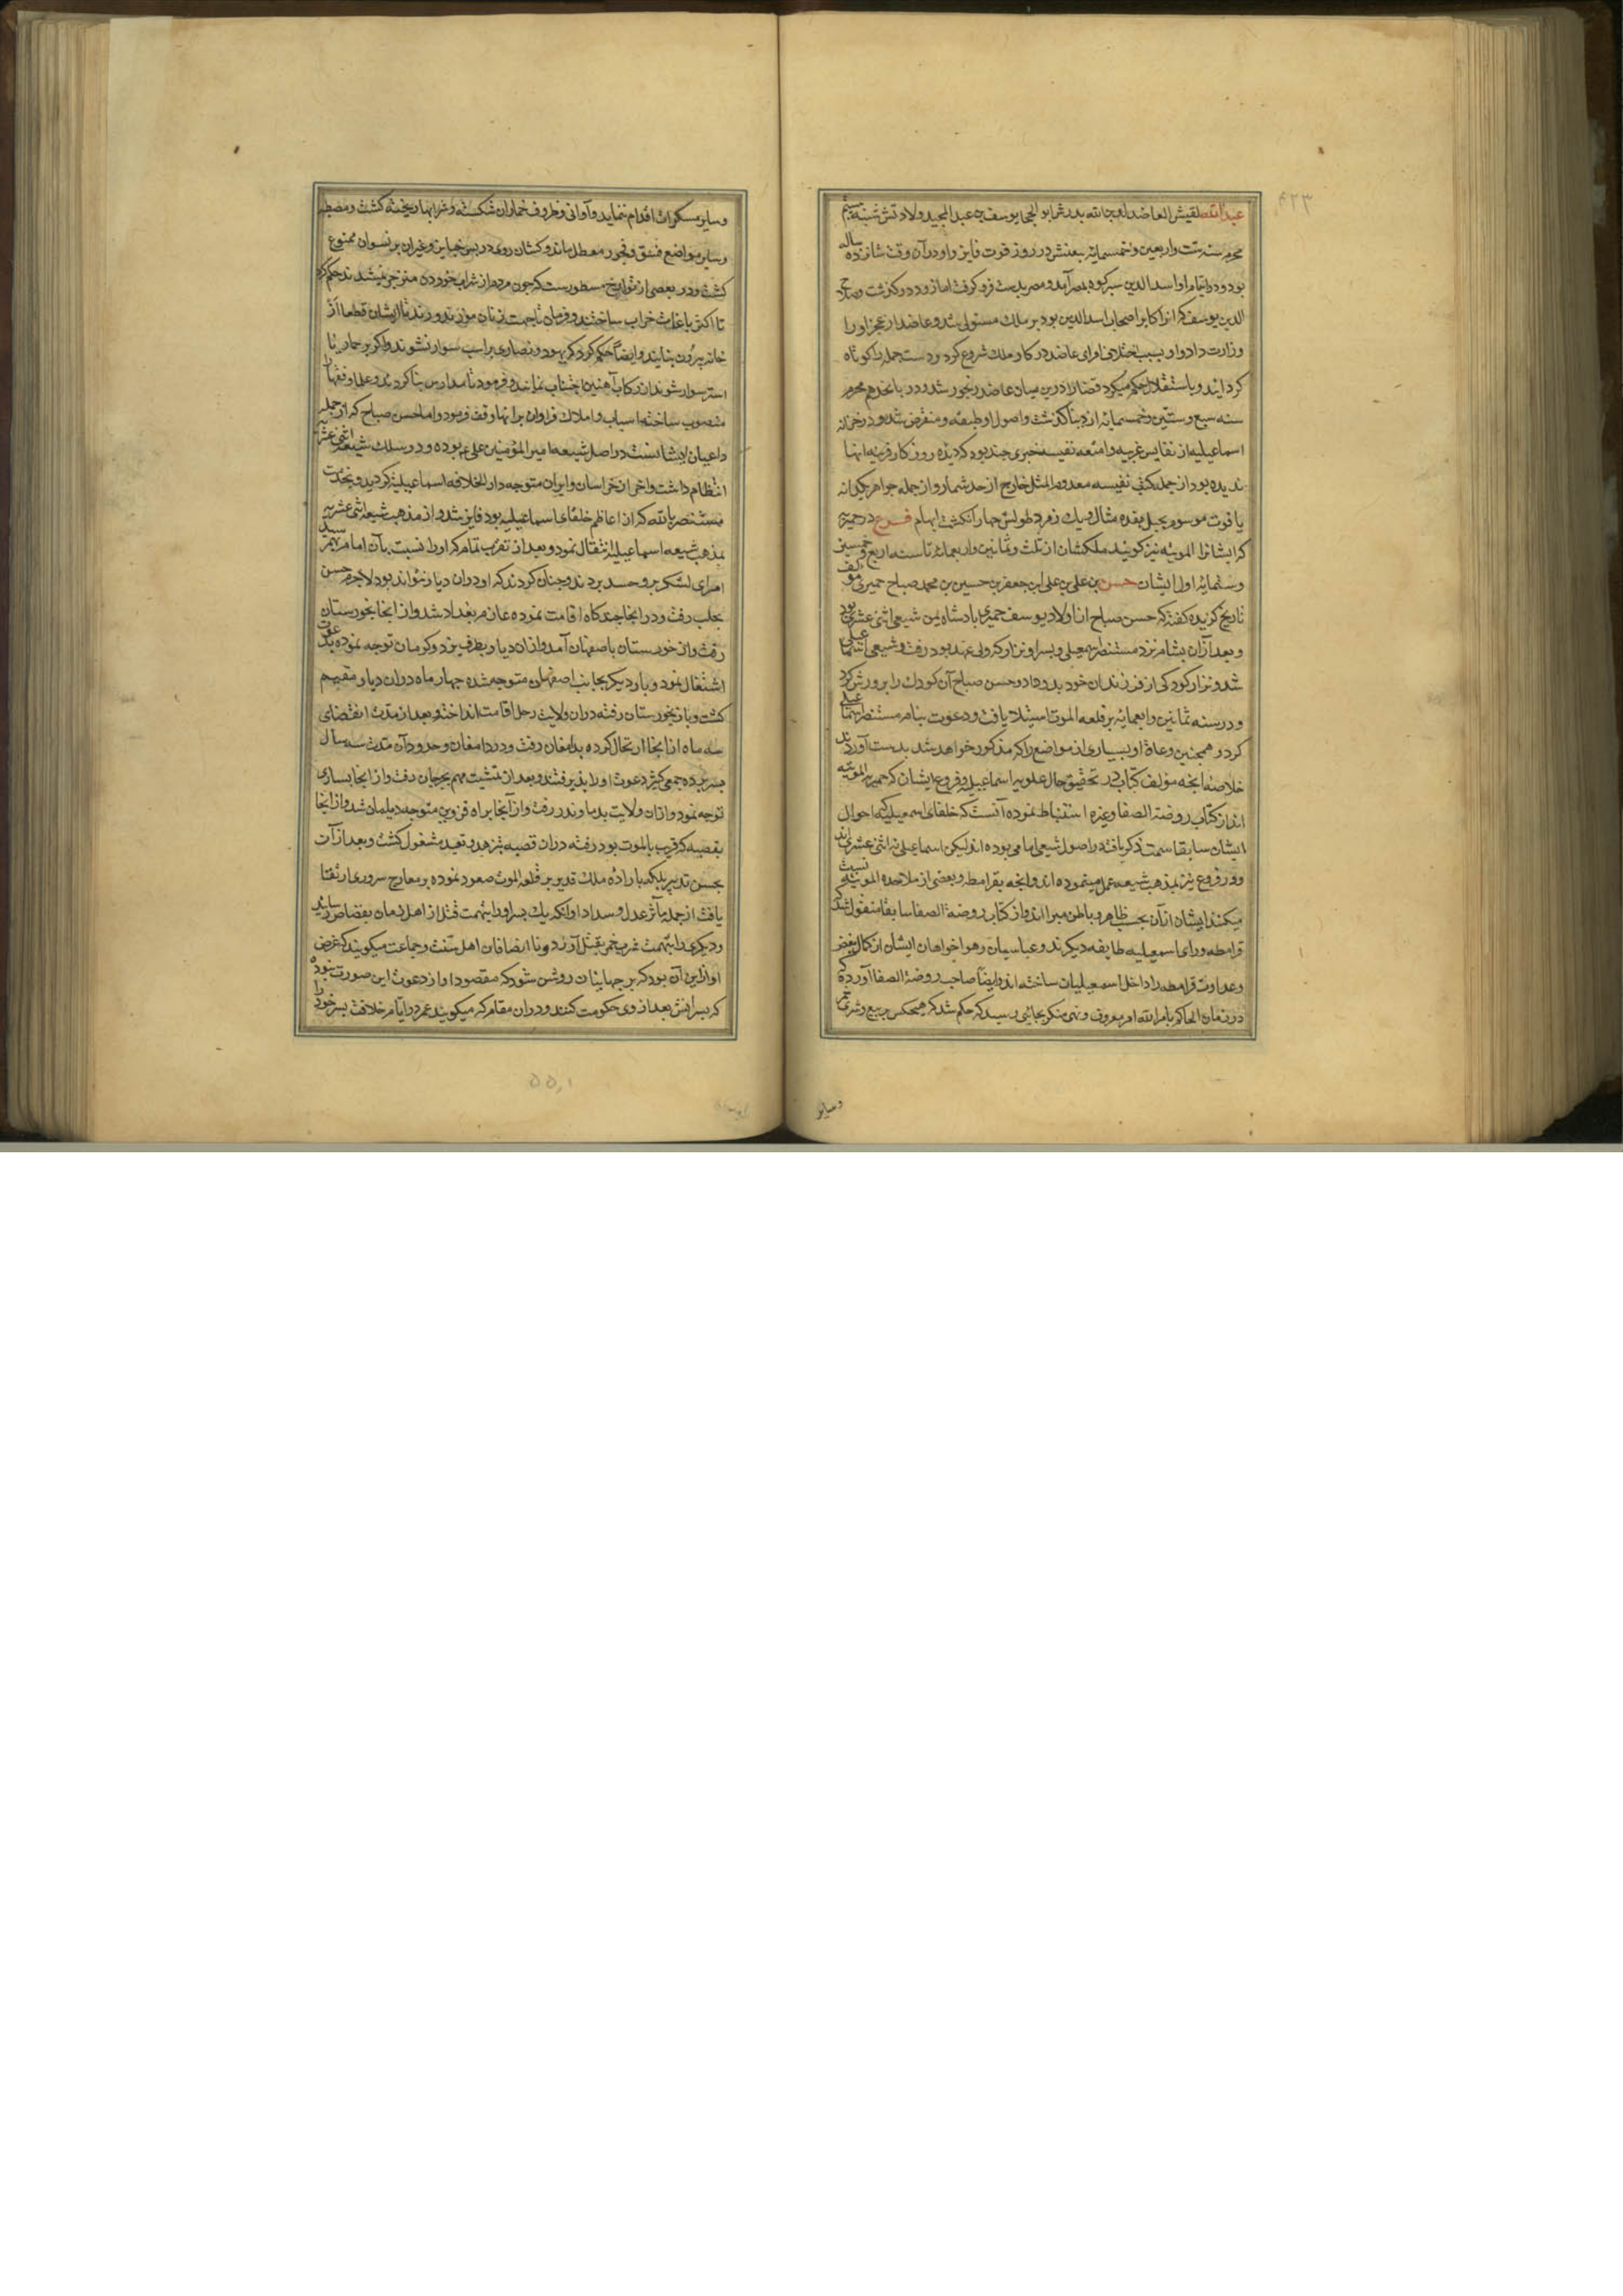 ۴۲۳
عبدالله لقبش العاضد لدین الله پدرش ابو الحجاج یوسف بن عبد المجید ولادتش شنبه بیستم
محرم سنه ست واربعین وخمسمایه بیعتش در روز فوت فایز واو دران وقت شانزده ساله
بود ودر ایام او اسد الدین شیرکوه بمصر آمد ومصر بدست فرو کرفت اما زود درکذشت وصلاح
الدین یوسف که از اکابر اصحاب اسد الدین بود بر ملک مستولی شد وعاضد از عجز او را
وزارت داد واو بسبب اختلاف امرای عاضد در کار ملک شروع کرد ودست جمله را کوتاه
کردانید وباستقلال حکم میکرد قضا را درین میان عاضد رنجور شد ودر یازدهم محرم
سنه سبع وستین وخمسمایه از دنیا کذشت واصول او طبقه ومنقرض شد ودر خزانه
اسماعیلیه از نفایس غریبه وامتعه نفیسه چیزی چند بود که دیده روزکار قرینه انها
ندیده بود از جمله کتب نفیسه معدوم المثل خارج از حد شمار واز جمله جواهر یکدانه
یاقوت موسوم بجبل هفده مثقال ویک زمرد طولش چهار انکشت ابهام فرع در حمیریه
که ایشانرا الموتیه نیز کویند ملکشان از ثلث وثمانین واربعمایه تا سنه اربع وخمسین
وستمایه اول ایشان حسن بن علی بن علی ابن جعفر بن حسین بن محمد صباح حمیری مولف
تاریخ کزیده کفته که حسن صباح از اولاد یوسف حمیری پادشاه یمن شیعی اثنی عشری بود
وبعد ازان بشام نزد مستنصر اسمعیلی وپسر او نزار که ولی عهد بود رفت وشیعی اسماعیلی
شد ونزار کودکی از فرزندان خود بدو داد وحسن صباح آن کودک را پرورش کرد
ودر سنه ثمانین واربعمایه بر قلعه الموت استیلا یافت ودعوت بنام مستنصر اسماعیلی
کرد وهمچنین دعاة او بسیاری از مواضع را که مذکور خواهد شد بدست آوردند
خلاصه انچه مؤلف کتاب در تحقیق حال علویه اسماعیلیه وفروع ایشان که حمیریه الموتیه
اند از کتاب روضة الصفا وغیره استنباط نموده آنست که خلفای اسمعیلیه که احوال
ایشان سابقا سمت ذکر یافت در اصول شیعی امامی بوده اند لیکن اسماعیلی نه اثنی عشری اند
ودر فروع نیز بمذهب شیعه عمل مینموده اند وانچه بقرامطه وبعضی از ملاحده الموتیه نسبت
میکنند ایشان ازان بحسب ظاهر وباطن مبرا اند واز کتاب روضة الصفا سابقا منقول شد که
قرامطه ورای اسمعیلیه طایفه دیکرند وعباسیان وهواخواهان ایشان از کمال بغض
وعداوت قرامطه را داخل اسمعیلیان ساخته اند وایضا صاحب روضة الصفا آورده که
در زمان الحاکم بامر الله امر معروف ونهی منکر بجائی رسید که حکم شد که هیچکس ببیع وشری خمر
وسایر
وسایر مسکرات اقدام ننماید واوانی وظروف خماران شکسته وشرابها ریخته کشت ومصطبه
وسایر مواضع فسق وفجور معطل ماند وکشان روی در پس جنایز وغیران بر نسوان ممنوع
کشت ودر بعضی از تواریخ مسطورست که چون مردم از شراب خوردن منزجر نمیشدند حکم کرد
تا اکثر باغات خراب ساختند وفرمان تا جهت زنان موزه ندوزند تا ایشان قطعا از
خانه بیرون نیایند وایضا حکم کرد که یهود ونصاری بر اسب سوار نشوند واکر بر حمار یا
استر سوار شوند از رکاب آهنین اجتناب نمایند وفرمود تا مدارس بنا کردند وعلما وفقها را
منصوب ساخته اسباب واملاک فراوان برانها وقف فرمود واما حسن صباح که از جمله
داعیان ایشانست در اصل شیعه امیر المؤمنین علی ع بوده ودر سلک شیعه اثنی عشریه
انتظام داشت واخر از خراسان وایران متوجه دار الخلافه اسماعیلیه کردید وبخدمت
مستنصر بالله که از اعاظم خلفای اسماعیلیه بود فایز شد واز مذهب شیعه اثنی عشریه
بمذهب شیعه اسماعیلیه انتقال نمود وبعد از تقرب تمام که او را نسبت بآن امام بهم رسید
امرای لشکر برو حسد بردند وچنان کردند که او دران دیار نتواند بود لاجرم حسن
بحلب رفت ودر انجا چند کاه اقامت نموده عازم بغداد شد واز انجا بخوزستان
رفت واز خوزستان باصفهان آمد وازان دیار بطرف یزد وکرمان توجه نموده بدعوت
اشتغال نمود وبار دیکر بجانب اصفهان متوجه شده چهار ماه دران دیار مقیم
کشت وباز بخوزستان رفته دران ولایت رحل اقامت انداخت وبعد از مدت انقضای
سه ماه از انجا ارتحال کرده بدامغان رفت ودر دامغان وحدود آن مدت سه سال
بسر برده جمعی کثیر دعوت او را پذیرفتند وبعد از تمشیت مهم بجرجان رفت واز انجا بساری
توجه نمود وازان ولایت بدماوند رفت واز آنجا براه قزوین متوجه دیلمان شد واز انجا
بقصبه که قریب بالموت بود رفته دران قصبه بتزهد وتعبد مشغول کشت وبعد ازان
بحسن تدبیر بلکه باراده ملک قدیر بر قلعه الموت صعود نموده بر معارج سروری ارتقا
یافت از جمله مآثر عدل وسداد او انکه یک پسر او را بتهمت قتل از اهل زمان بقصاص رسانید
ودیکری را بتهمت شرب خمر بقتل آورد ونا انصافان اهل سنت وجماعت میکویند که غرض
او ازین آن بود که بر جهانیان روشن شود که مقصود او از دعوت این صورت نبوده
که پسرانش بعد از وی حکومت کنند ودران مقام که میکویند عمر در ایام خلافت پسر خود را
۵۵,۱